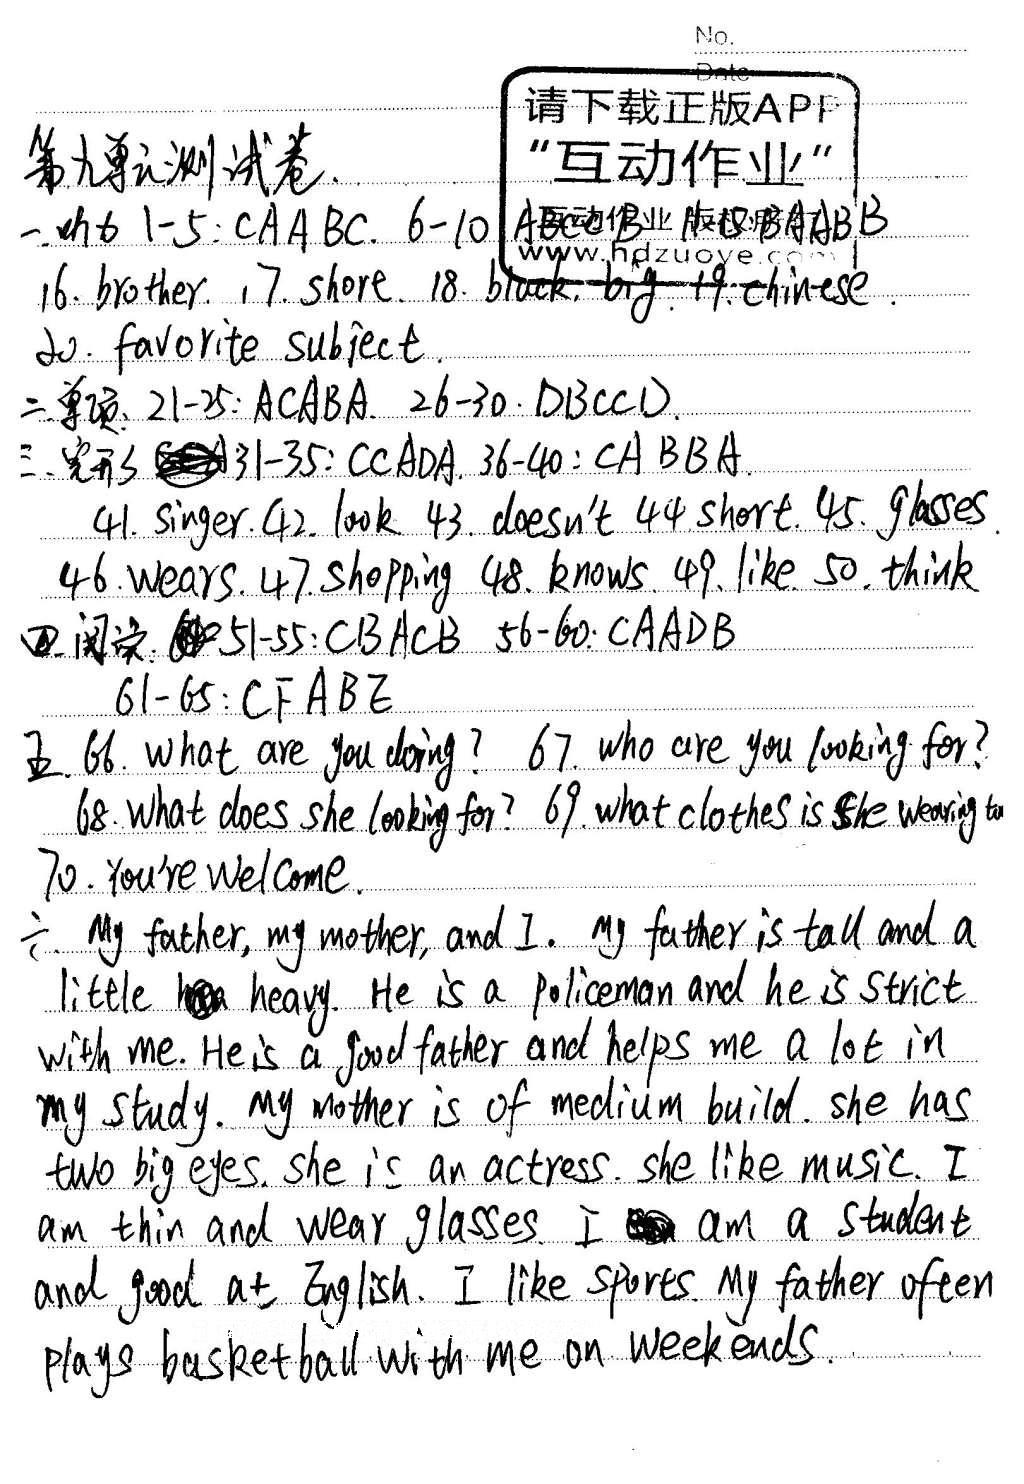 No.
Date
请下载正版APP
“互动作业”
www.hdzuoye.com
第九单元测试卷.
一. 1-5: CAABC. 6-10 ABCCB BAABB
16. brother. 17. shore. 18. black. big. 19. chinese.
20. favorite subject.
二. 单项. 21-25: ACABA. 26-30. DBCCD.
三. 完形 31-35: CCADA. 36-40: CABBA.
41. singer. 42. look 43. doesn't 44 short. 45. glasses.
46. wears. 47. shopping 48. knows. 49. like. 50. think
四. 阅读. 51-55: CBACB 56-60: CAADB
61-65: CFABE
五. 66. What are you doing? 67. who are you looking for?
68. What does she looking for? 69. what clothes is she wearing
70. You're welcome.
六. My father, my mother, and I. My father is tall and a
little heavy. He is a policeman and he is strict
with me. He is a good father and helps me a lot in
my study. My mother is of medium build. she has
two big eyes. she is an actress. she like music. I
am thin and wear glasses. I am a student
and good at English. I like sports. My father often
plays basketball with me on weekends.